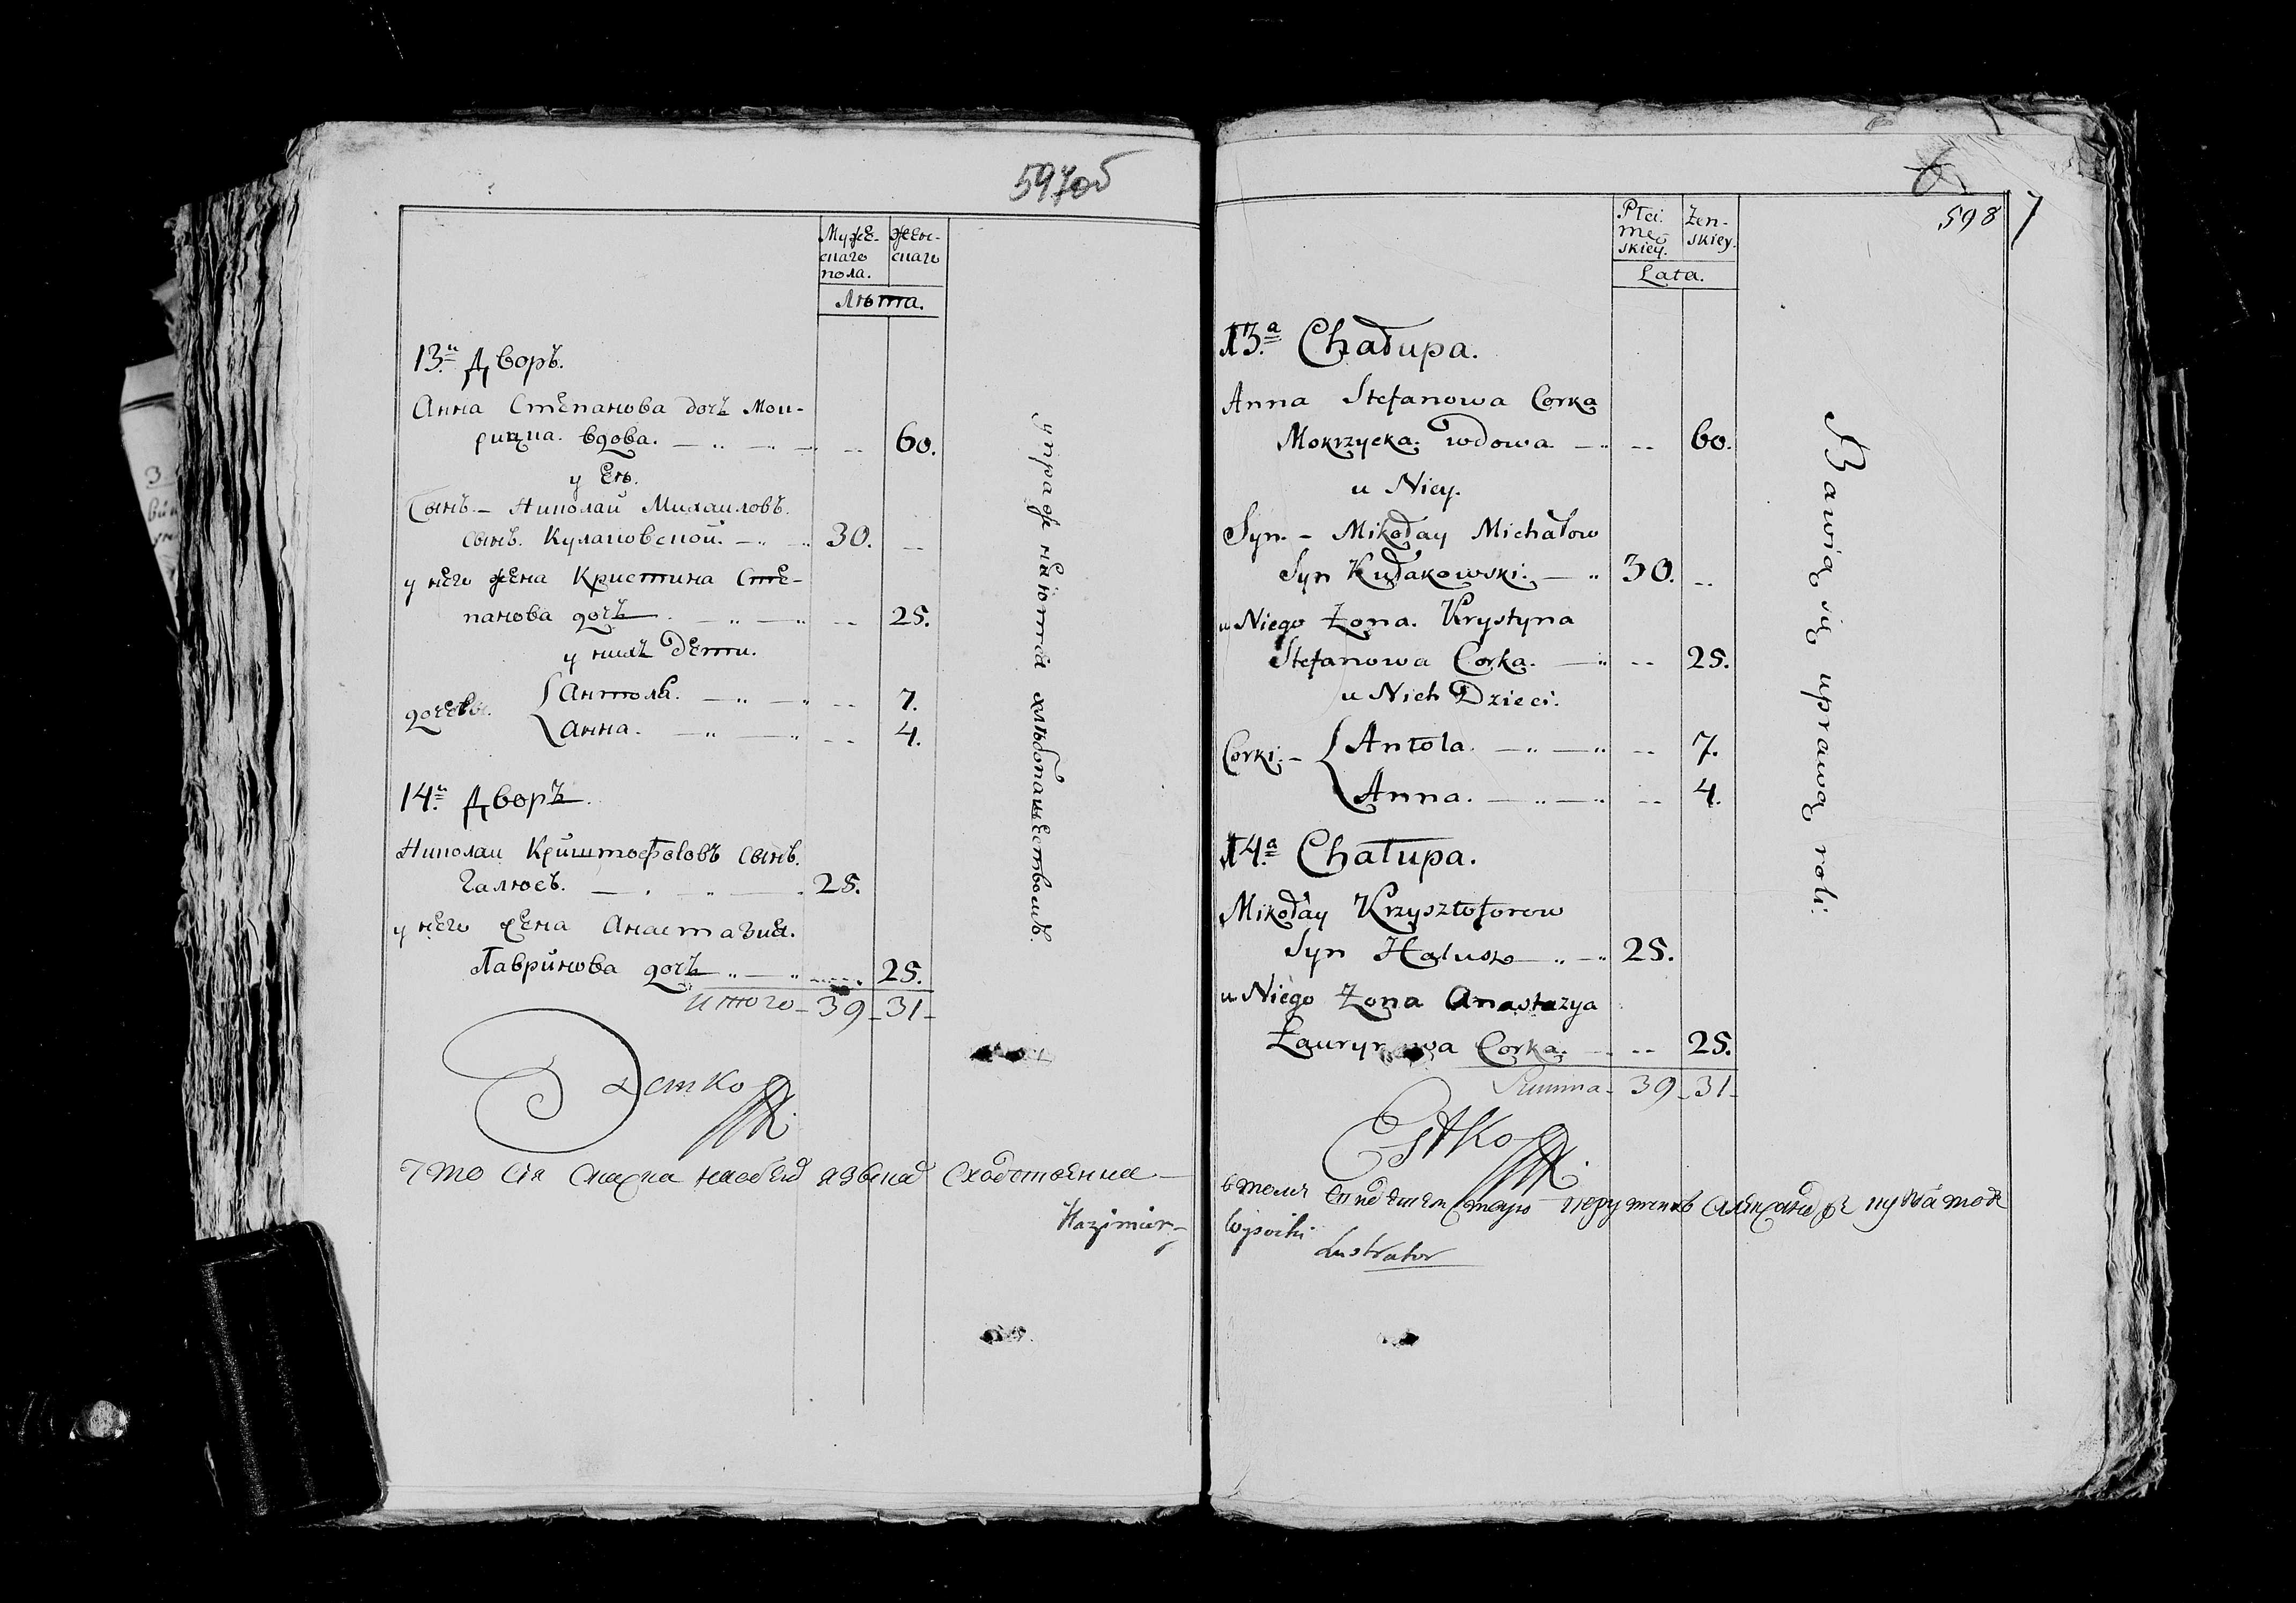 597об
Муже-
скаго
пола.
Жен-
скаго
Лѣта.
13й Дворъ.
Анна Степанова дочь Мок-
рицка. вдова. — 60.
у Ея.
Сынъ — Николай Михаиловъ
сынъ. Кулаковской. — 30.
у него жена Кристина Сте-
панова дочь — 25.
у нихъ Дети.
дочери. Антоля. — 7.
Анна. — 4.
14й Дворъ.
Николай Криштофовъ сынъ.
Галюсъ. — 25.
у него жена Анастазия.
Лавринова дочь — 25.
Итого — 39 — 31 —
упражняются хлѣбопашествомъ.
Естко
Что сія Сказка
Kazimier-
598
7
Płci
Mę-
skiey.
Żen-
skiey.
Lata.
13a Chałupa.
Anna Stefanowa Corka
Mokrzycka. wdowa — 60.
u Niey.
Syn. — Mikołay Michałow
Syn Kułakowski. — 30.
u Niego Żona. Krystyna
Stefanowa Corka. — 25.
u Nich Dzieci.
Corki. — Antola. — 7.
Anna. — 4.
14a Chałupa.
Mikołay Krzysztoforow
Syn Halusz — 25.
u Niego Żona Anastazya
Corka. — 25.
Summa — 39 — 31 —
Bawią się uprawą roli.
Estko
Wysocki
Lustrator